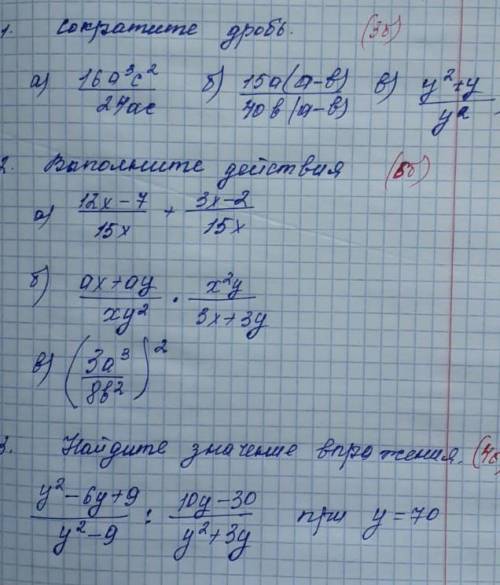 1. Сократите дробь. (3б)
а) 16a³c²/24ac б) 15a(a-b)/40b(a-b) в) y²+y/y²
2. Выполните действия (6б)
а) 12x-7/15x + 3x-2/15x
б) ax+ay/xy² · x²y/3x+3y
в) (3a³/8b²)²
3. Найдите значение впражения. (4б)
y²-6y+9/y²-9 : 10y-30/y²+3y при y=70